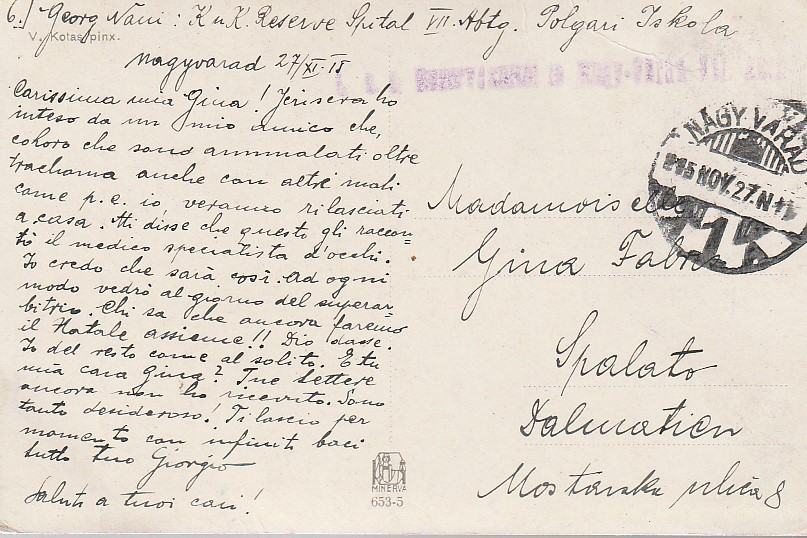 6.) Georg Nani: K u K. Reserve Spital VII. Abtg. Polgari Iskola
V. Kotas pinx.
Nagyvarad 27/XI-15
Carissima mia Gina! Jeri sera ho
inteso da un mio amico che,
coloro che sono ammalati oltre
trachoma anche con altri mali
come p. e. io veranno rilasciati
a casa. Mi disse che questo gli raccon-
tò il medico specialista d'occhi.
Io credo che sarà così. Ad ogni
modo vedrò al giorno del superar-
bitrio. Chi sa che ancora faremo
il Natale assieme!! Dio dasse.
Io del resto come al solito. E tu
mia cara Gina? Tue lettere
ancora non ho ricevuto. Sono
tanto desideroso! Ti lascio per
momento con infiniti baci
tutto tuo Giorgio
Saluti a tuoi cari!
NAGYVÁRAD
915 NOV. 27. N
1
Madamoiselle
Gina Fabris
Spalato
Dalmatien
Mostarska ulica 8
MINERVA
653-5